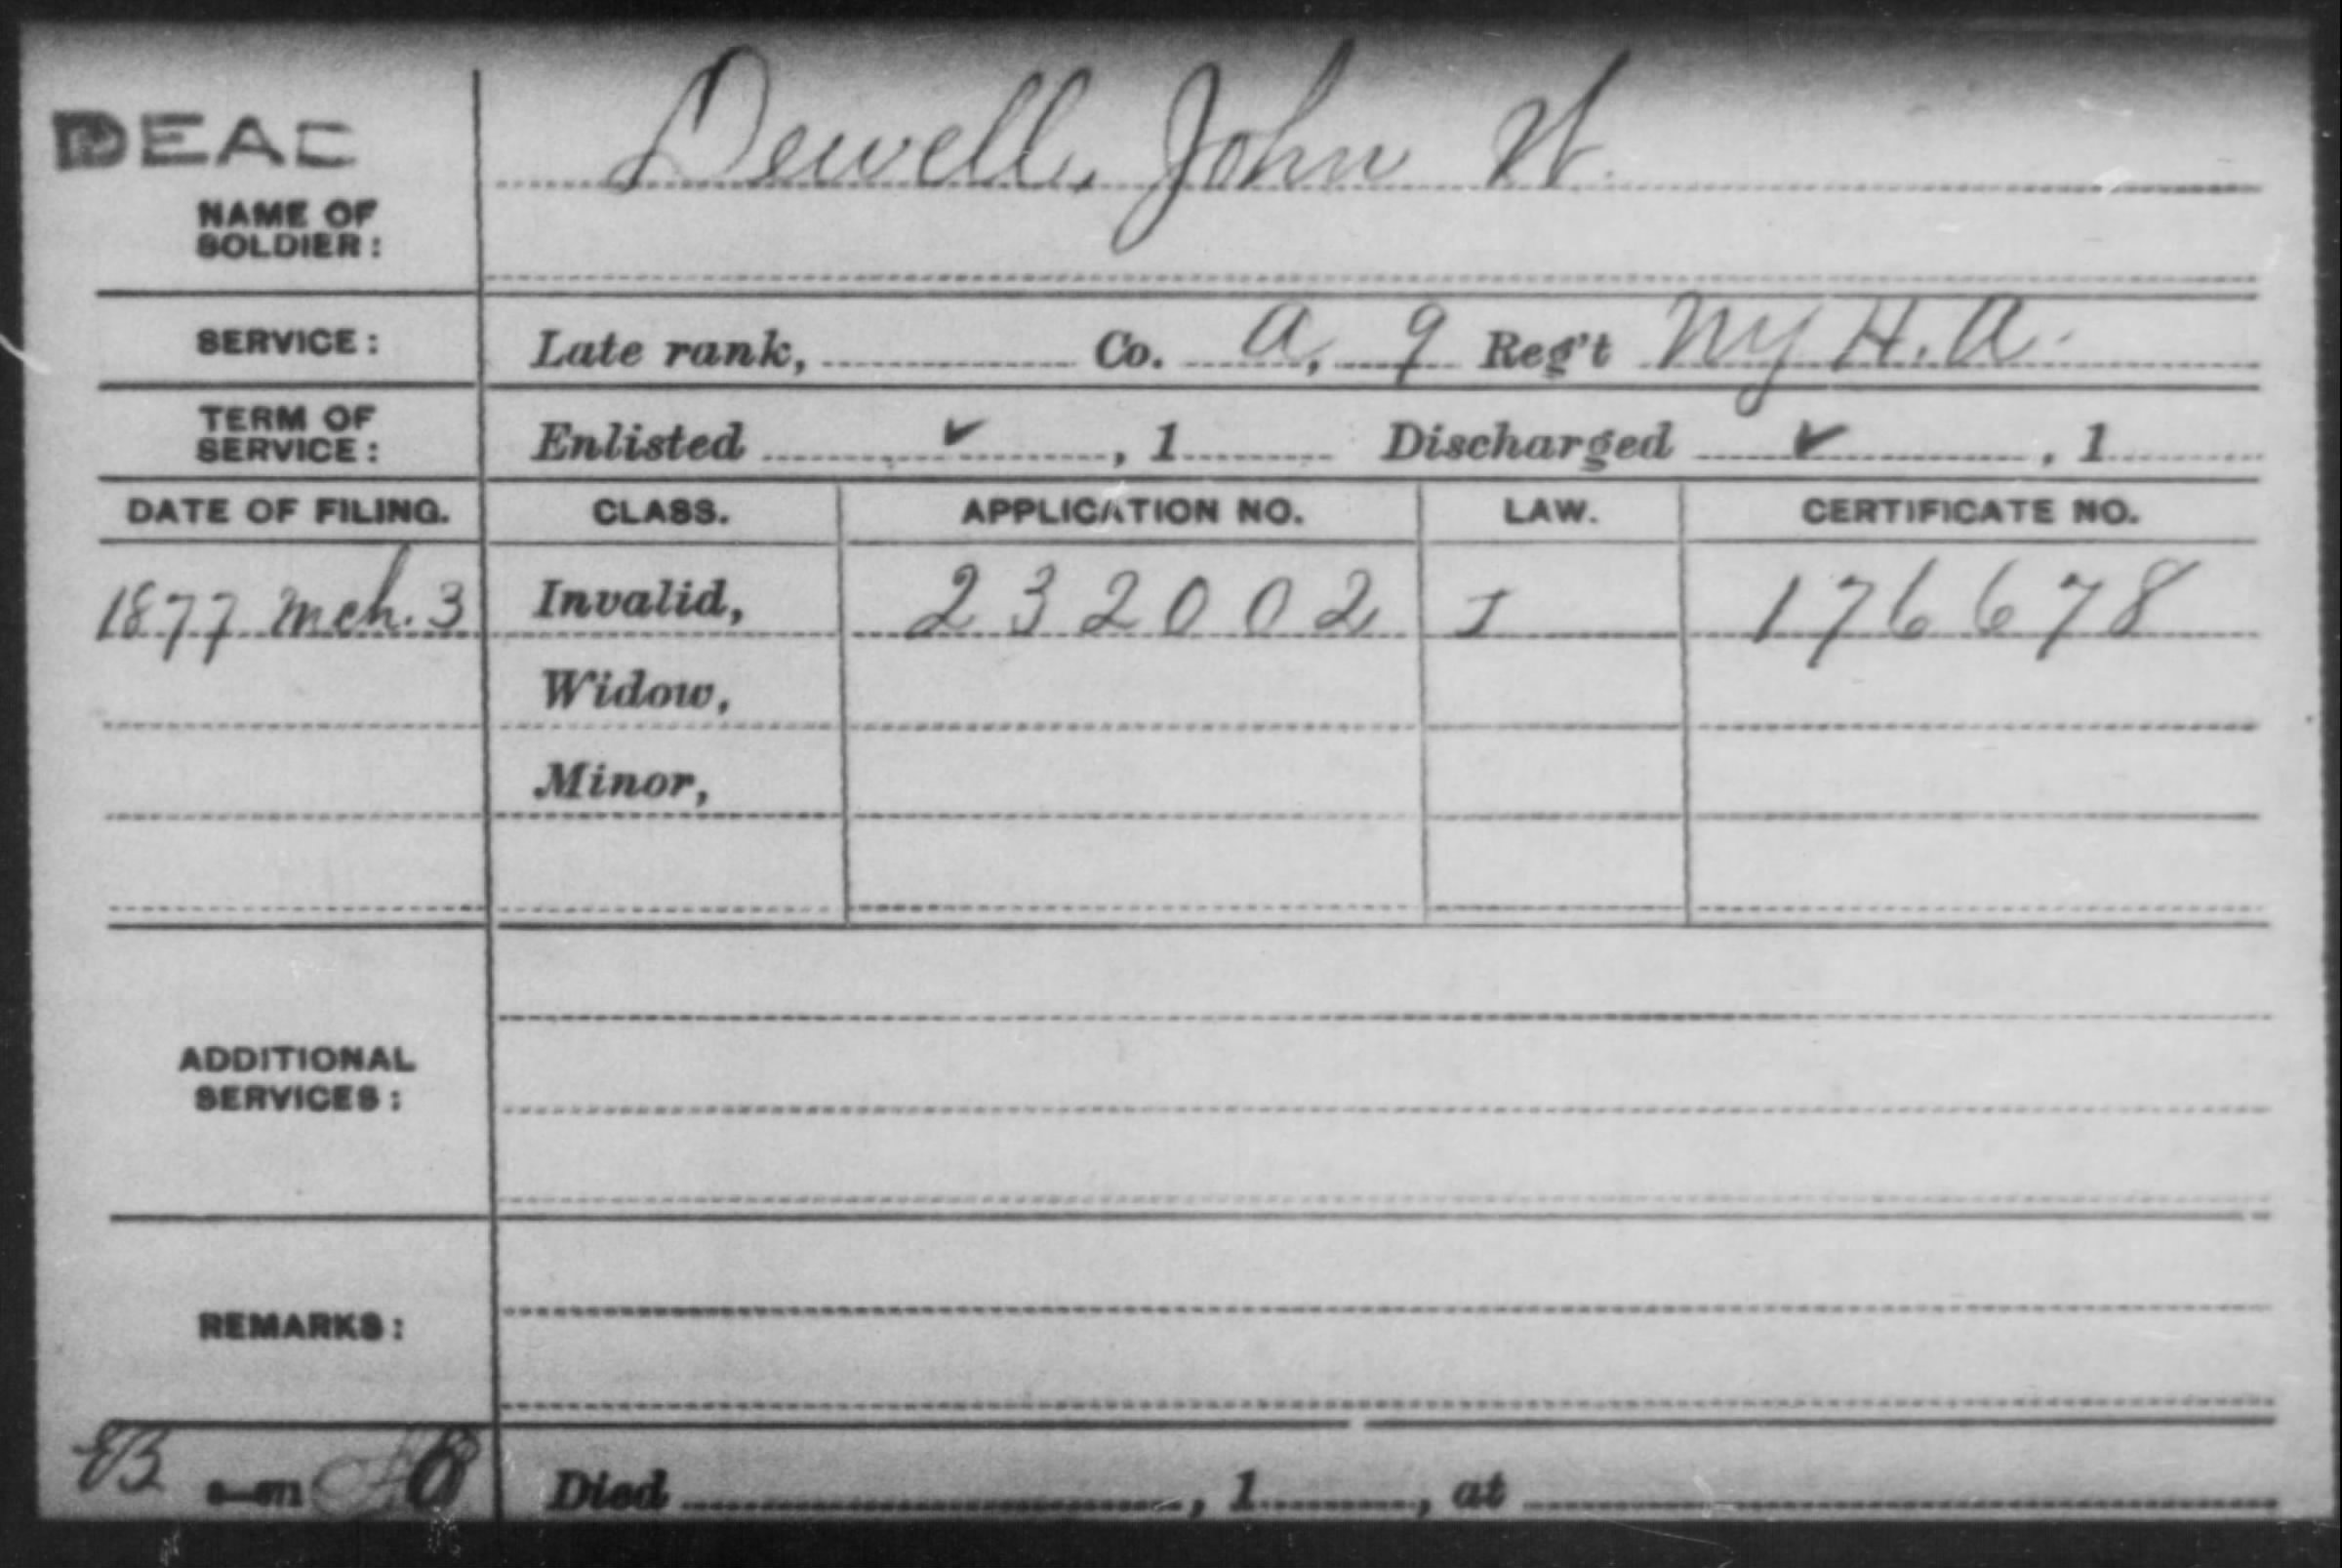 DEAD
Dewell, John W.
NAME OF
SOLDIER:
SERVICE: Late rank, Co. A, 9 Reg't NY H. A.
TERM OF
SERVICE: Enlisted ✓ , 1 Discharged ✓ , 1
DATE OF FILING. CLASS. APPLICATION NO. LAW. CERTIFICATE NO.
1877 Mch. 3 Invalid, 232002 I 176678
Widow,
Minor,
ADDITIONAL
SERVICES:
REMARKS:
Died , 1 , at